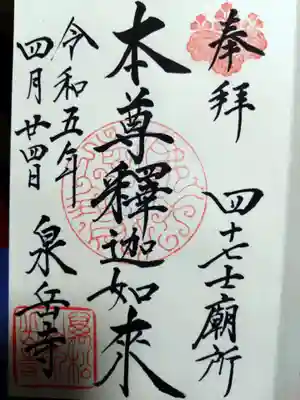 奉拝
四十七士廟所
本尊釋迦如來
令和五年
四月廿四日
泉岳寺